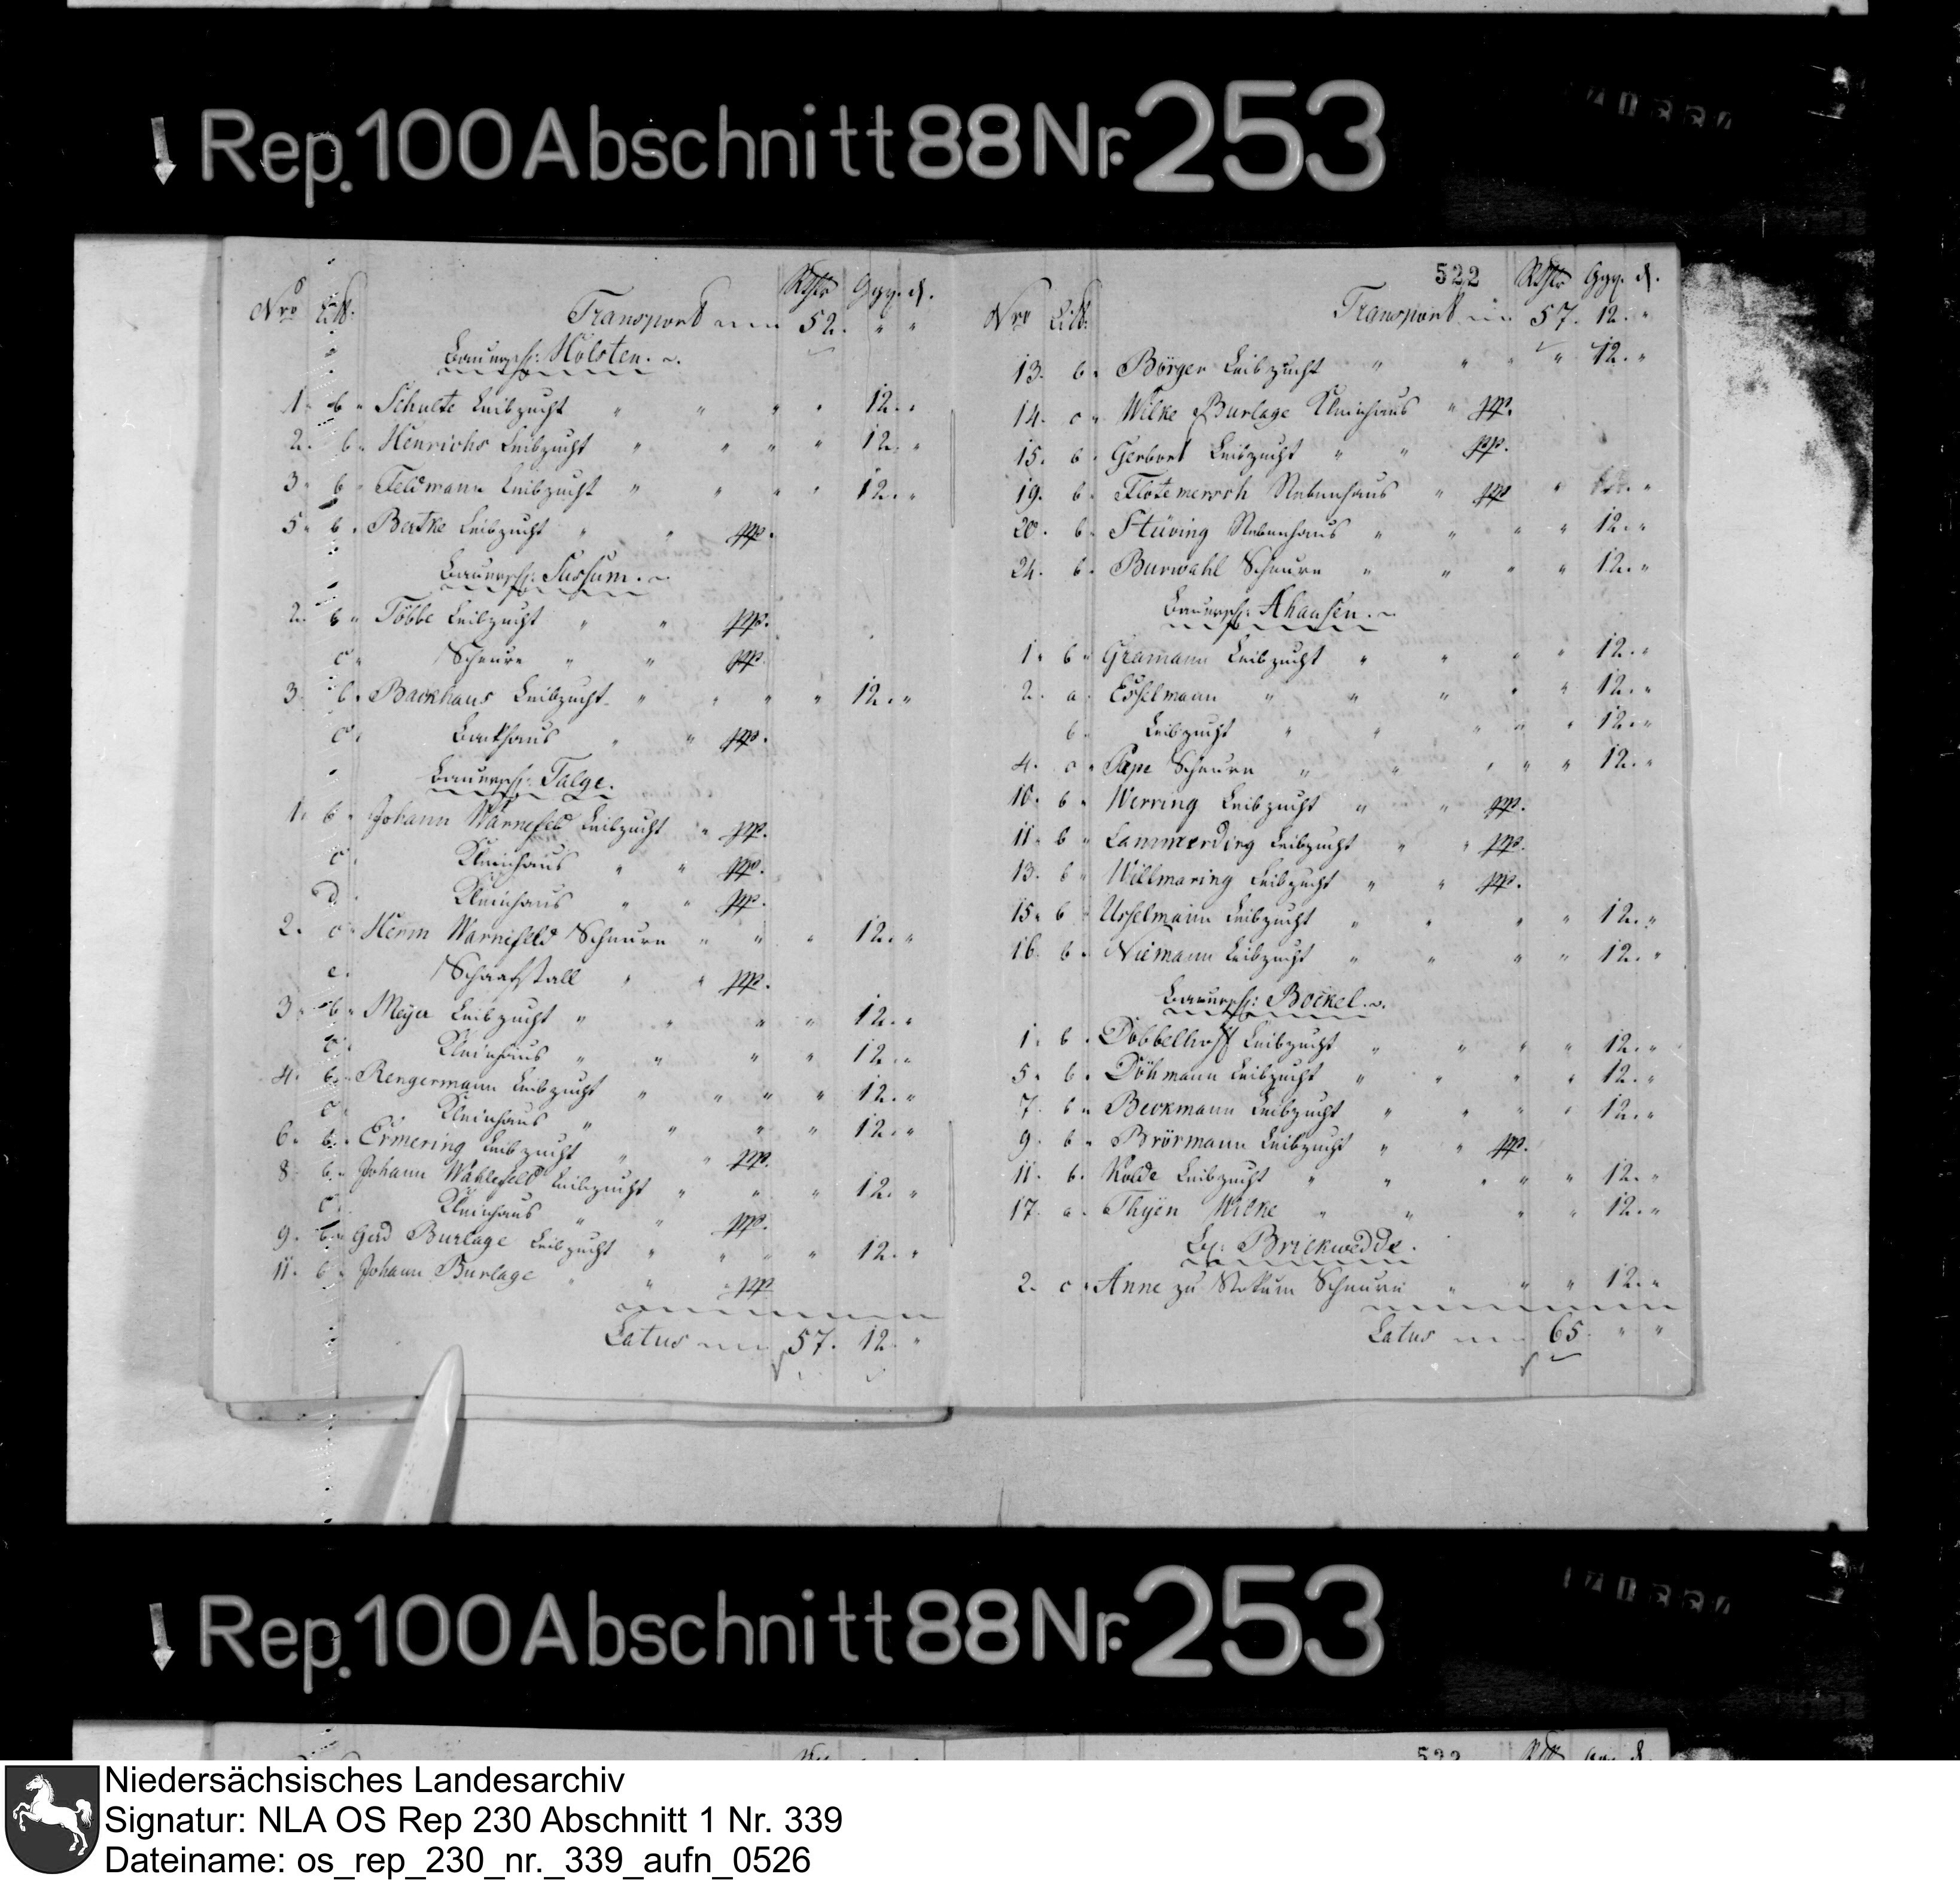 ↓ Rep. 100 Abschnitt 88 Nr. 253
Nro Litt. Rthlr Ggr. d.
Transport 52. " "
Bauersch: Holsten.
1. b. Schulte Leibzucht " " " " 12. "
2. b. Henrichs Leibzucht " " " " 12. "
3. b. Feldmann Leibzucht " " " " 12. "
5. b. Bertke Leibzucht " " ppp.
Bauersch: Sussum.
2. b. Többe Leibzucht " " ppp.
c. Scheure " " ppp.
3. b. Backhaus Leibzucht " " " " 12. "
c. Backhaus " " ppp.
Bauersch: Talge.
1. b. Johann Warnefeld Leibzucht " ppp.
c. Kleinhaus " " ppp.
d. Kleinhaus " " ppp.
2. c. Herm Warnefeld Scheure " " " 12. "
e. Schaafstall " " ppp.
3. b. Meyer Leibzucht " " " " 12. "
c. Kleinhaus " " " " 12. "
4. b. Rengermann Leibzucht " " " " 12. "
c. Kleinhaus " " " " 12. "
6. b. Ermering Leibzucht " " ppp.
8. b. Johann Wahlefeld Leibzucht " " " 12. "
c. Kleinhaus " " ppp.
9. b. Gerd Burlage Leibzucht " " " " 12. "
11. b. Johann Burlage " " " ppp
Latus 57. 12. "
522
Nro Litt. Rthlr Ggr. d.
Transport 57. 12. "
13. b. Börger Leibzucht " " " " 12. "
14. c. Wilke Burlage Kleinhaus " ppp.
15. b. Gerbert Leibzucht " " ppp.
19. b. Flotemersch Nebenhaus " ppp " "
20. b. Stüving Nebenhaus " " " " 12. "
24. b. Burwahl Scheure " " " " 12. "
Bauersch: Ahausen.
1. b. Gramann Leibzucht " " " " 12. "
2. a. Esselmann " " " " " 12. "
b. Leibzucht " " " " " 12. "
4. c. Pape Scheure " " " " " 12. "
10. b. Werring Leibzucht " " ppp.
11. b. Lammerding Leibzucht " " ppp.
13. b. Willmaring Leibzucht " " ppp.
15. b. Usselmann Leibzucht " " " " 12. "
16. b. Niemann Leibzucht " " " " 12. "
Bauersch: Bockel.
1. b. Dobbelhoff Leibzucht " " " " 12. "
5. b. Döhmann Leibzucht " " " " 12. "
7. b. Beckmann Leibzucht " " " " 12. "
9. b. Brörmann Leibzucht " " ppp.
11. b. Nolde Leibzucht " " " " " 12. "
17. a. Thyen Wilke " " " " 12. "
Brickwedde.
2. c. Anne zu Stokum Scheure " " " 12. "
Latus 65. " "
↓ Rep. 100 Abschnitt 88 Nr. 253
522
Niedersächsisches Landesarchiv
Signatur: NLA OS Rep 230 Abschnitt 1 Nr. 339
Dateiname: os_rep_230_nr._339_aufn_0526